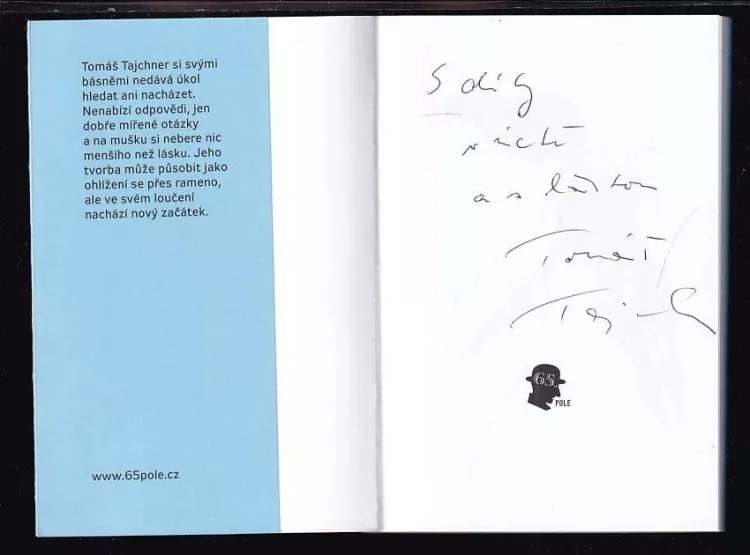 Tomáš Tajchner si svými
básněmi nedává úkol
hledat ani nacházet.
Nenabízí odpovědi, jen
dobře mířené otázky
a na mušku si nebere nic
menšího než lásku. Jeho
tvorba může působit jako
ohlížení se přes rameno,
ale ve svém loučení
nachází nový začátek.
www.65pole.cz
S díky
a s láskou
Tomáš
65.
POLE